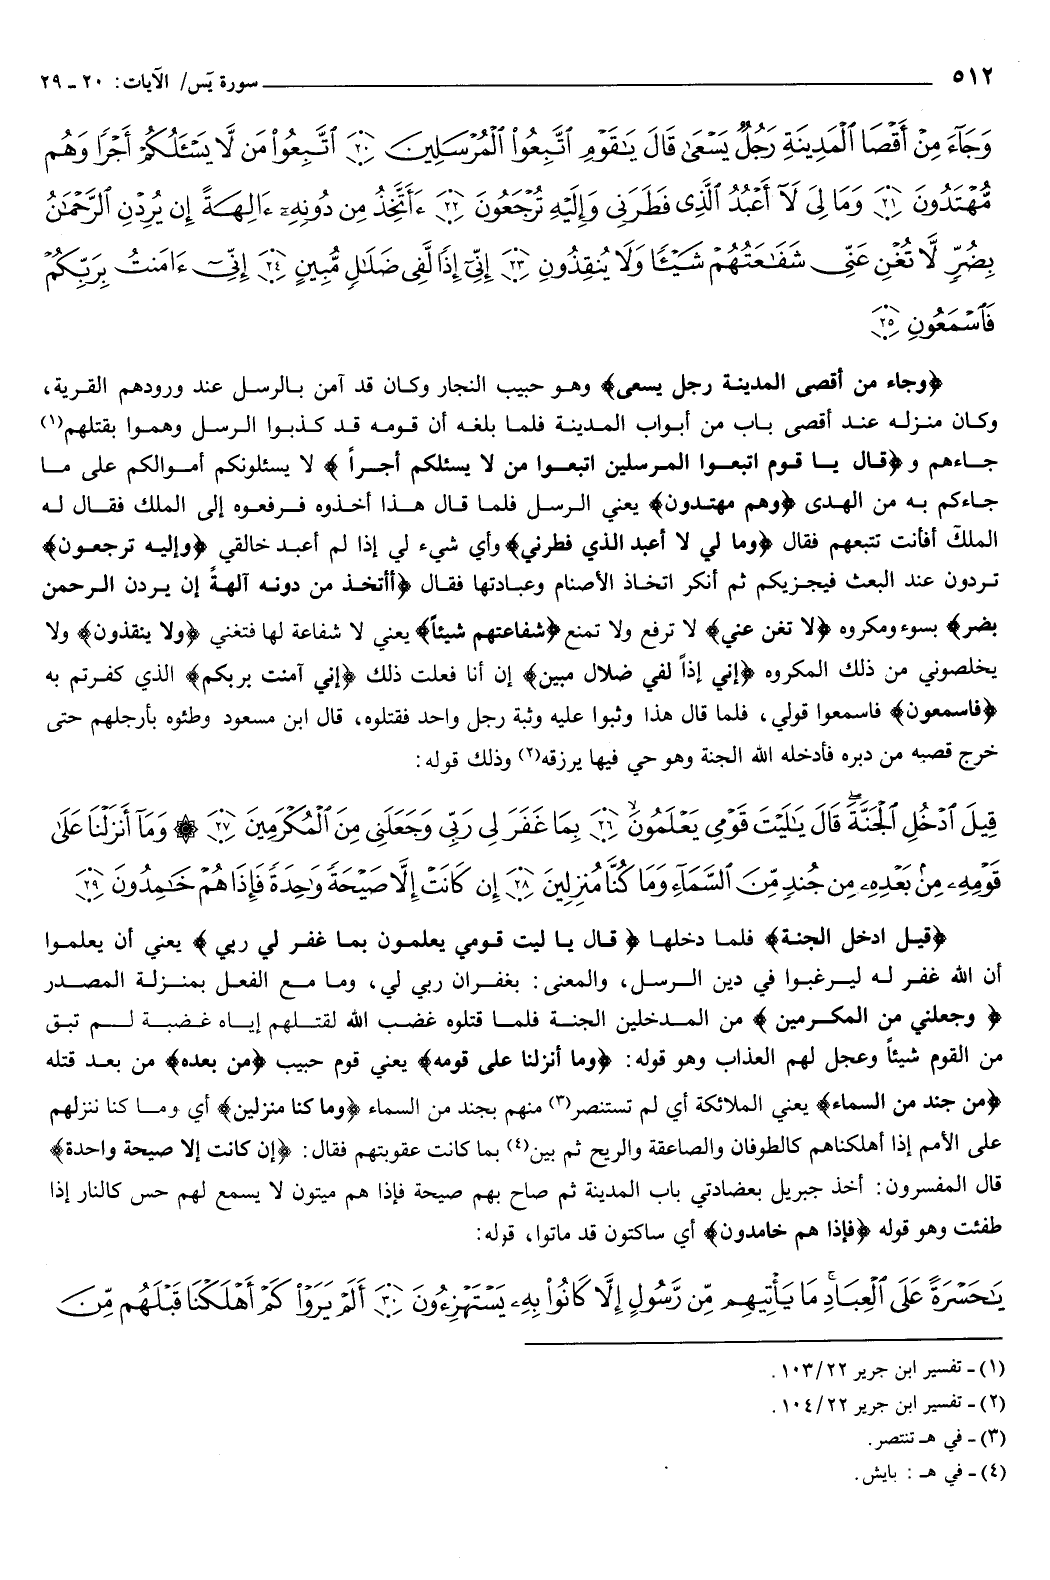 ٥١٢ سورة يٓس/ الآيات: ٢٠ ـ ٢٩
وَجَآءَ مِنْ أَقْصَا ٱلْمَدِينَةِ رَجُلٌ يَسْعَىٰ قَالَ يَـٰقَوْمِ ٱتَّبِعُوا۟ ٱلْمُرْسَلِينَ ﴿٢٠﴾ ٱتَّبِعُوا۟ مَن لَّا يَسْـَٔلُكُمْ أَجْرًا وَهُم
مُّهْتَدُونَ ﴿٢١﴾ وَمَا لِىَ لَآ أَعْبُدُ ٱلَّذِى فَطَرَنِى وَإِلَيْهِ تُرْجَعُونَ ﴿٢٢﴾ ءَأَتَّخِذُ مِن دُونِهِۦٓ ءَالِهَةً إِن يُرِدْنِ ٱلرَّحْمَـٰنُ
بِضُرٍّ لَّا تُغْنِ عَنِّى شَفَـٰعَتُهُمْ شَيْـًٔا وَلَا يُنقِذُونِ ﴿٢٣﴾ إِنِّىٓ إِذًا لَّفِى ضَلَـٰلٍ مُّبِينٍ ﴿٢٤﴾ إِنِّىٓ ءَامَنتُ بِرَبِّكُمْ
فَٱسْمَعُونِ ﴿٢٥﴾
﴿وجاء من أقصى المدينة رجل يسعى﴾ وهو حبيب النجار وكان قد آمن بالرسل عند ورودهم القرية،
وكان منزله عند أقصى باب من أبواب المدينة فلما بلغه أن قومه قد كذبوا الرسل وهموا بقتلهم(١)
جاءهم و﴿قال يا قوم اتبعوا المرسلين اتبعوا من لا يسئلكم أجراً﴾ لا يسئلونكم أموالكم على ما
جاءكم به من الهدى ﴿وهم مهتدون﴾ يعني الرسل فلما قال هذا أخذوه فرفعوه إلى الملك فقال له
الملك أفأنت تتبعهم فقال ﴿وما لي لا أعبد الذي فطرني﴾ وأي شيء لي إذا لم أعبد خالقي ﴿وإليه ترجعون﴾
تردون عند البعث فيجزيكم ثم أنكر اتخاذ الأصنام وعبادتها فقال ﴿أأتخذ من دونه آلهةً إن يردن الرحمن
بضر﴾ بسوء ومكروه ﴿لا تغن عني﴾ لا ترفع ولا تمنع ﴿شفاعتهم شيئاً﴾ يعني لا شفاعة لها فتغني ﴿ولا ينقذون﴾ ولا
يخلصوني من ذلك المكروه ﴿إني إذاً لفي ضلال مبين﴾ إن أنا فعلت ذلك ﴿إني آمنت بربكم﴾ الذي كفرتم به
﴿فاسمعون﴾ فاسمعوا قولي، فلما قال هذا وثبوا عليه وثبة رجل واحد فقتلوه، قال ابن مسعود وطئوه بأرجلهم حتى
خرج قصبه من دبره فأدخله الله الجنة وهو حي فيها يرزقه(٢) وذلك قوله:
قِيلَ ٱدْخُلِ ٱلْجَنَّةَ ۖ قَالَ يَـٰلَيْتَ قَوْمِى يَعْلَمُونَ ﴿٢٦﴾ بِمَا غَفَرَ لِى رَبِّى وَجَعَلَنِى مِنَ ٱلْمُكْرَمِينَ ﴿٢٧﴾ ۞ وَمَآ أَنزَلْنَا عَلَىٰ
قَوْمِهِۦ مِنۢ بَعْدِهِۦ مِن جُندٍ مِّنَ ٱلسَّمَآءِ وَمَا كُنَّا مُنزِلِينَ ﴿٢٨﴾ إِن كَانَتْ إِلَّا صَيْحَةً وَٰحِدَةً فَإِذَا هُمْ خَـٰمِدُونَ ﴿٢٩﴾
﴿قيل ادخل الجنة﴾ فلما دخلها ﴿قال يا ليت قومي يعلمون بما غفر لي ربي﴾ يعني أن يعلموا
أن الله غفر له ليرغبوا في دين الرسل، والمعنى: بغفران ربي لي، وما مع الفعل بمنزلة المصدر
﴿وجعلني من المكرمين﴾ من المدخلين الجنة فلما قتلوه غضب الله لقتلهم إياه غضبة لم تبق
من القوم شيئاً وعجل لهم العذاب وهو قوله: ﴿وما أنزلنا على قومه﴾ يعني قوم حبيب ﴿من بعده﴾ من بعد قتله
﴿من جند من السماء﴾ يعني الملائكة أي لم تستنصر(٣) منهم بجند من السماء ﴿وما كنا منزلين﴾ أي وما كنا ننزلهم
على الأمم إذا أهلكناهم كالطوفان والصاعقة والريح ثم بين(٤) بما كانت عقوبتهم فقال: ﴿إن كانت إلا صيحة واحدة﴾
قال المفسرون: أخذ جبريل بعضادتي باب المدينة ثم صاح بهم صيحة فإذا هم ميتون لا يسمع لهم حس كالنار إذا
طفئت وهو قوله ﴿فإذا هم خامدون﴾ أي ساكتون قد ماتوا، قوله:
يَـٰحَسْرَةً عَلَى ٱلْعِبَادِ ۚ مَا يَأْتِيهِم مِّن رَّسُولٍ إِلَّا كَانُوا۟ بِهِۦ يَسْتَهْزِءُونَ ﴿٣٠﴾ أَلَمْ يَرَوْا۟ كَمْ أَهْلَكْنَا قَبْلَهُم مِّنَ
(١) ـ تفسير ابن جرير ١٠٣/٢٢.
(٢) ـ تفسير ابن جرير ١٠٤/٢٢.
(٣) ـ في هـ تنتصر.
(٤) ـ في هـ: بايش.